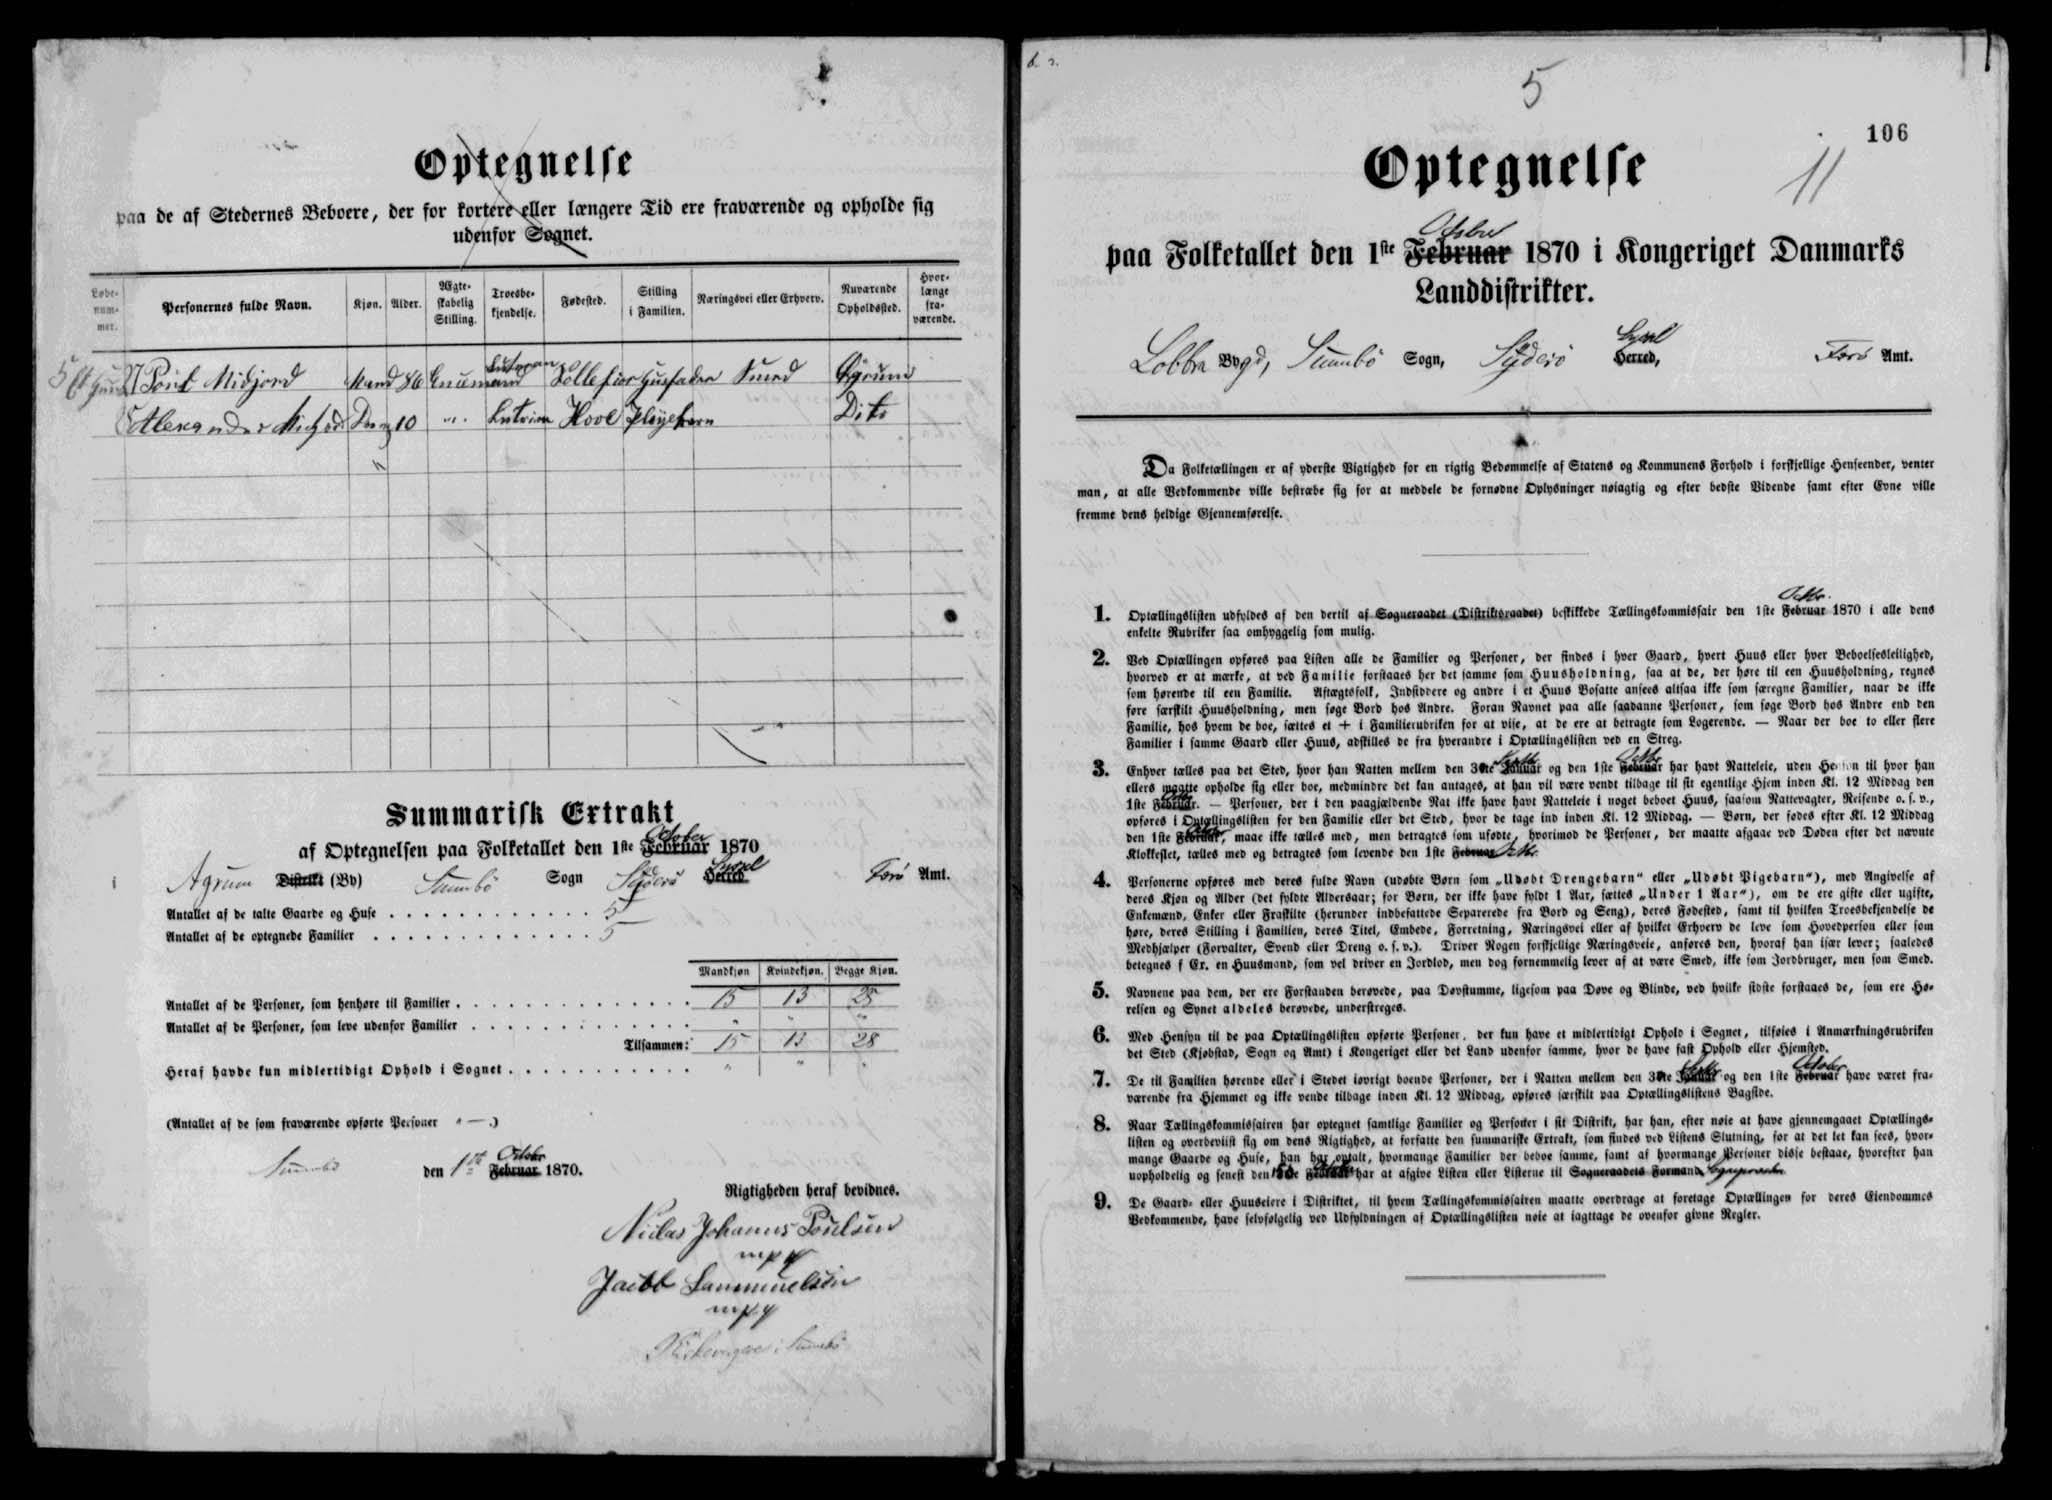 Optegnelse
paa de af Stedernes Beboere, der for kortere eller længere Tid ere fraværende og opholde sig
udenfor Sognet.
Løbe-nummer. Personernes fulde Navn. Kjøn. Alder. Ægteskabelig Stilling. Troesbekjendelse. Fødested. Stilling i Familien. Næringsvei eller Erhverv. Nuværende Opholdssted. Hvorlænge fraværende.
5 Poul Midjord Mand 46 Lutheran Husfader Smed Øgrum
Alexander Dreng 10 " Hove Plejebarn Dito
Summarisk Extrakt
October
af Optegnelsen paa Folketallet den 1ste Februar 1870
Sysel
Agrum Distrikt (By) Sumbö Sogn Syderö Herred Færö Amt.
Antallet af de talte Gaarde og Huse . . . . . . . . . . . . . 5
Antallet af de optegnede Familier . . . . . . . . . . . . . 5
Mandkjøn Kvindekjøn. Begge Kjøn.
Antallet af de Personer, som henhøre til Familier . . . . . . . . . . . . . 15 13 28
Antallet af de Personer, som leve udenfor Familier . . . . . . . . . . . . . " " "
Tilsammen: 15 13 28
Heraf havde kun midlertidigt Ophold i Sognet . . . . . . . . . . . . " " "
(Antallet af de som fraværende opførte Personer " — .)
Octobr
Sumbö den 1ste Februar 1870.
Rigtigheden heraf bevidnes.
Niclas Johannes Poulsen
mpp
Jacob Sammuelsen
mpp
i Sumbö
5
106
11
Optegnelse
Octbr
paa Folketallet den 1ste Februar 1870 i Kongeriget Danmarks
Landdistrikter.
Sysel
Lobbra Bygd, Sumbö Sogn, Syderö Herred, Færö Amt.
Da Folketællingen er af yderste Vigtighed for en rigtig Bedømmelse af Statens og Kommunens Forhold i forskjellige Henseender, venter
man, at alle Vedkommende ville bestræbe sig for at meddele de fornødne Oplysninger nøiagtig og efter bedste Vidende samt efter Evne ville
fremme dens heldige Gjennemførelse.
Octbr.
1. Optællingslisten udfyldes af den dertil af Sogneraadet (Distriktsraadet) beskikkede Tællingskommissair den 1ste Februar 1870 i alle dens
enkelte Rubriker saa omhyggelig som mulig.
2. Ved Optællingen opføres paa Listen alle de Familier og Personer, der findes i hver Gaard, hvert Huus eller hver Beboelsesleilighed,
hvorved er at mærke, at ved Familie forstaaes her det samme som Huusholdning, saa at de, der høre til een Huusholdning, regnes
som hørende til een Familie. Aftægtsfolk, Indsiddere og andre i et Huus Bosatte ansees altsaa ikke som særegne Familier, naar de ikke
føre særskilt Huusholdning, men søge Bord hos Andre. Foran Navnet paa alle saadanne Personer, som søge Bord hos Andre end den
Familie, hos hvem de boe, sættes et + i Familierubriken for at vise, at de ere at betragte som Logerende. — Naar der boe to eller flere
Familier i samme Gaard eller Huus, adskilles de fra hverandre i Optællingslisten ved en Streg.
Septbr Octbr
3. Enhver tælles paa det Sted, hvor han Natten mellem den 30te Januar og den 1ste Februar har havt Natteleie, uden Hensyn til hvor han
ellers maatte opholde sig eller boe, medmindre det kan antages, at han vil være vendt tilbage til sit egentlige Hjem inden Kl. 12 Middag den
1ste Februar. — Personer, der i den paagjældende Nat ikke have havt Natteleie i noget beboet Huus, saasom Nattevagter, Reisende o. s. v.,
opføres i Optællingslisten for den Familie eller det Sted, hvor de tage ind inden Kl. 12 Middag. — Børn, der fødes efter Kl. 12 Middag
den 1ste Februar, maae ikke tælles med, men betragtes som ufødte, hvorimod de Personer, der maatte afgaae ved Døden efter det nævnte
Klokkeslet, tælles med og betragtes som levende den 1ste Februar Octbr.
4. Personerne opføres med deres fulde Navn (udøbte Børn som „Udøbt Drengebarn“ eller „Udøbt Pigebarn“), med Angivelse af
deres Kjøn og Alder (det fyldte Aldersaar; for Børn, der ikke have fyldt 1 Aar, sættes „Under 1 Aar“), om de ere gifte eller ugifte,
Enkemænd, Enker eller Fraskilte (herunder indbefattede Separerede fra Bord og Seng), deres Fødested, samt til hvilken Troesbekjendelse de
høre, deres Stilling i Familien, deres Titel, Embede, Forretning, Næringsvei eller af hvilket Erhverv de leve som Hovedperson eller som
Medhjælper (Forvalter, Svend eller Dreng o. s. v.). Driver Nogen forskjellige Næringsveie, anføres den, hvoraf han især lever; saaledes
betegnes f Ex. en Huusmand, som vel driver en Jordlod, men dog fornemmelig lever af at være Smed, ikke som Jordbruger, men som Smed.
5. Navnene paa dem, der ere Forstanden berøvede, paa Døvstumme, ligesom paa Døve og Blinde, ved hvilke sidste forstaaes de, som ere Hø-
relsen og Synet aldeles berøvede, understreges.
6. Med Hensyn til de paa Optællingslisten opførte Personer, der kun have et midlertidigt Ophold i Sognet, tilføies i Anmærkningsrubriken
det Sted (Kjøbstad, Sogn og Amt) i Kongeriget eller det Land udenfor samme, hvor de have fast Ophold eller Hjemsted.
October
7. De til Familien hørende eller i Stedet iøvrigt boende Personer, der i Natten mellem den 30te Januar og den 1ste Februar have været fra-
værende fra Hjemmet og ikke vende tilbage inden Kl. 12 Middag, opføres særskilt paa Optællingslistens Bagside.
8. Naar Tællingskommissairen har optegnet samtlige Familier og Personer i sit Distrikt, har han, efter nøie at have gjennemgaaet Optællings-
listen og overbeviist sig om dens Rigtighed, at forfatte den summariske Extrakt, som findes ved Listens Slutning, for at det let kan sees, hvor-
mange Gaarde og Huse, han har optalt, hvormange Familier der beboe samme, samt af hvormange Personer disse bestaae, hvorefter han
uopholdelig og senest den Februar har at afgive Listen eller Listerne til Sogneraadets Formand
9. De Gaard- eller Huuseiere i Distriktet, til hvem Tællingskommissairen maatte overdrage at foretage Optællingen for deres Eiendommes
Vedkommende, have selvfølgelig ved Udfyldningen af Optællingslisten nøie at iagttage de ovenfor givne Regler.